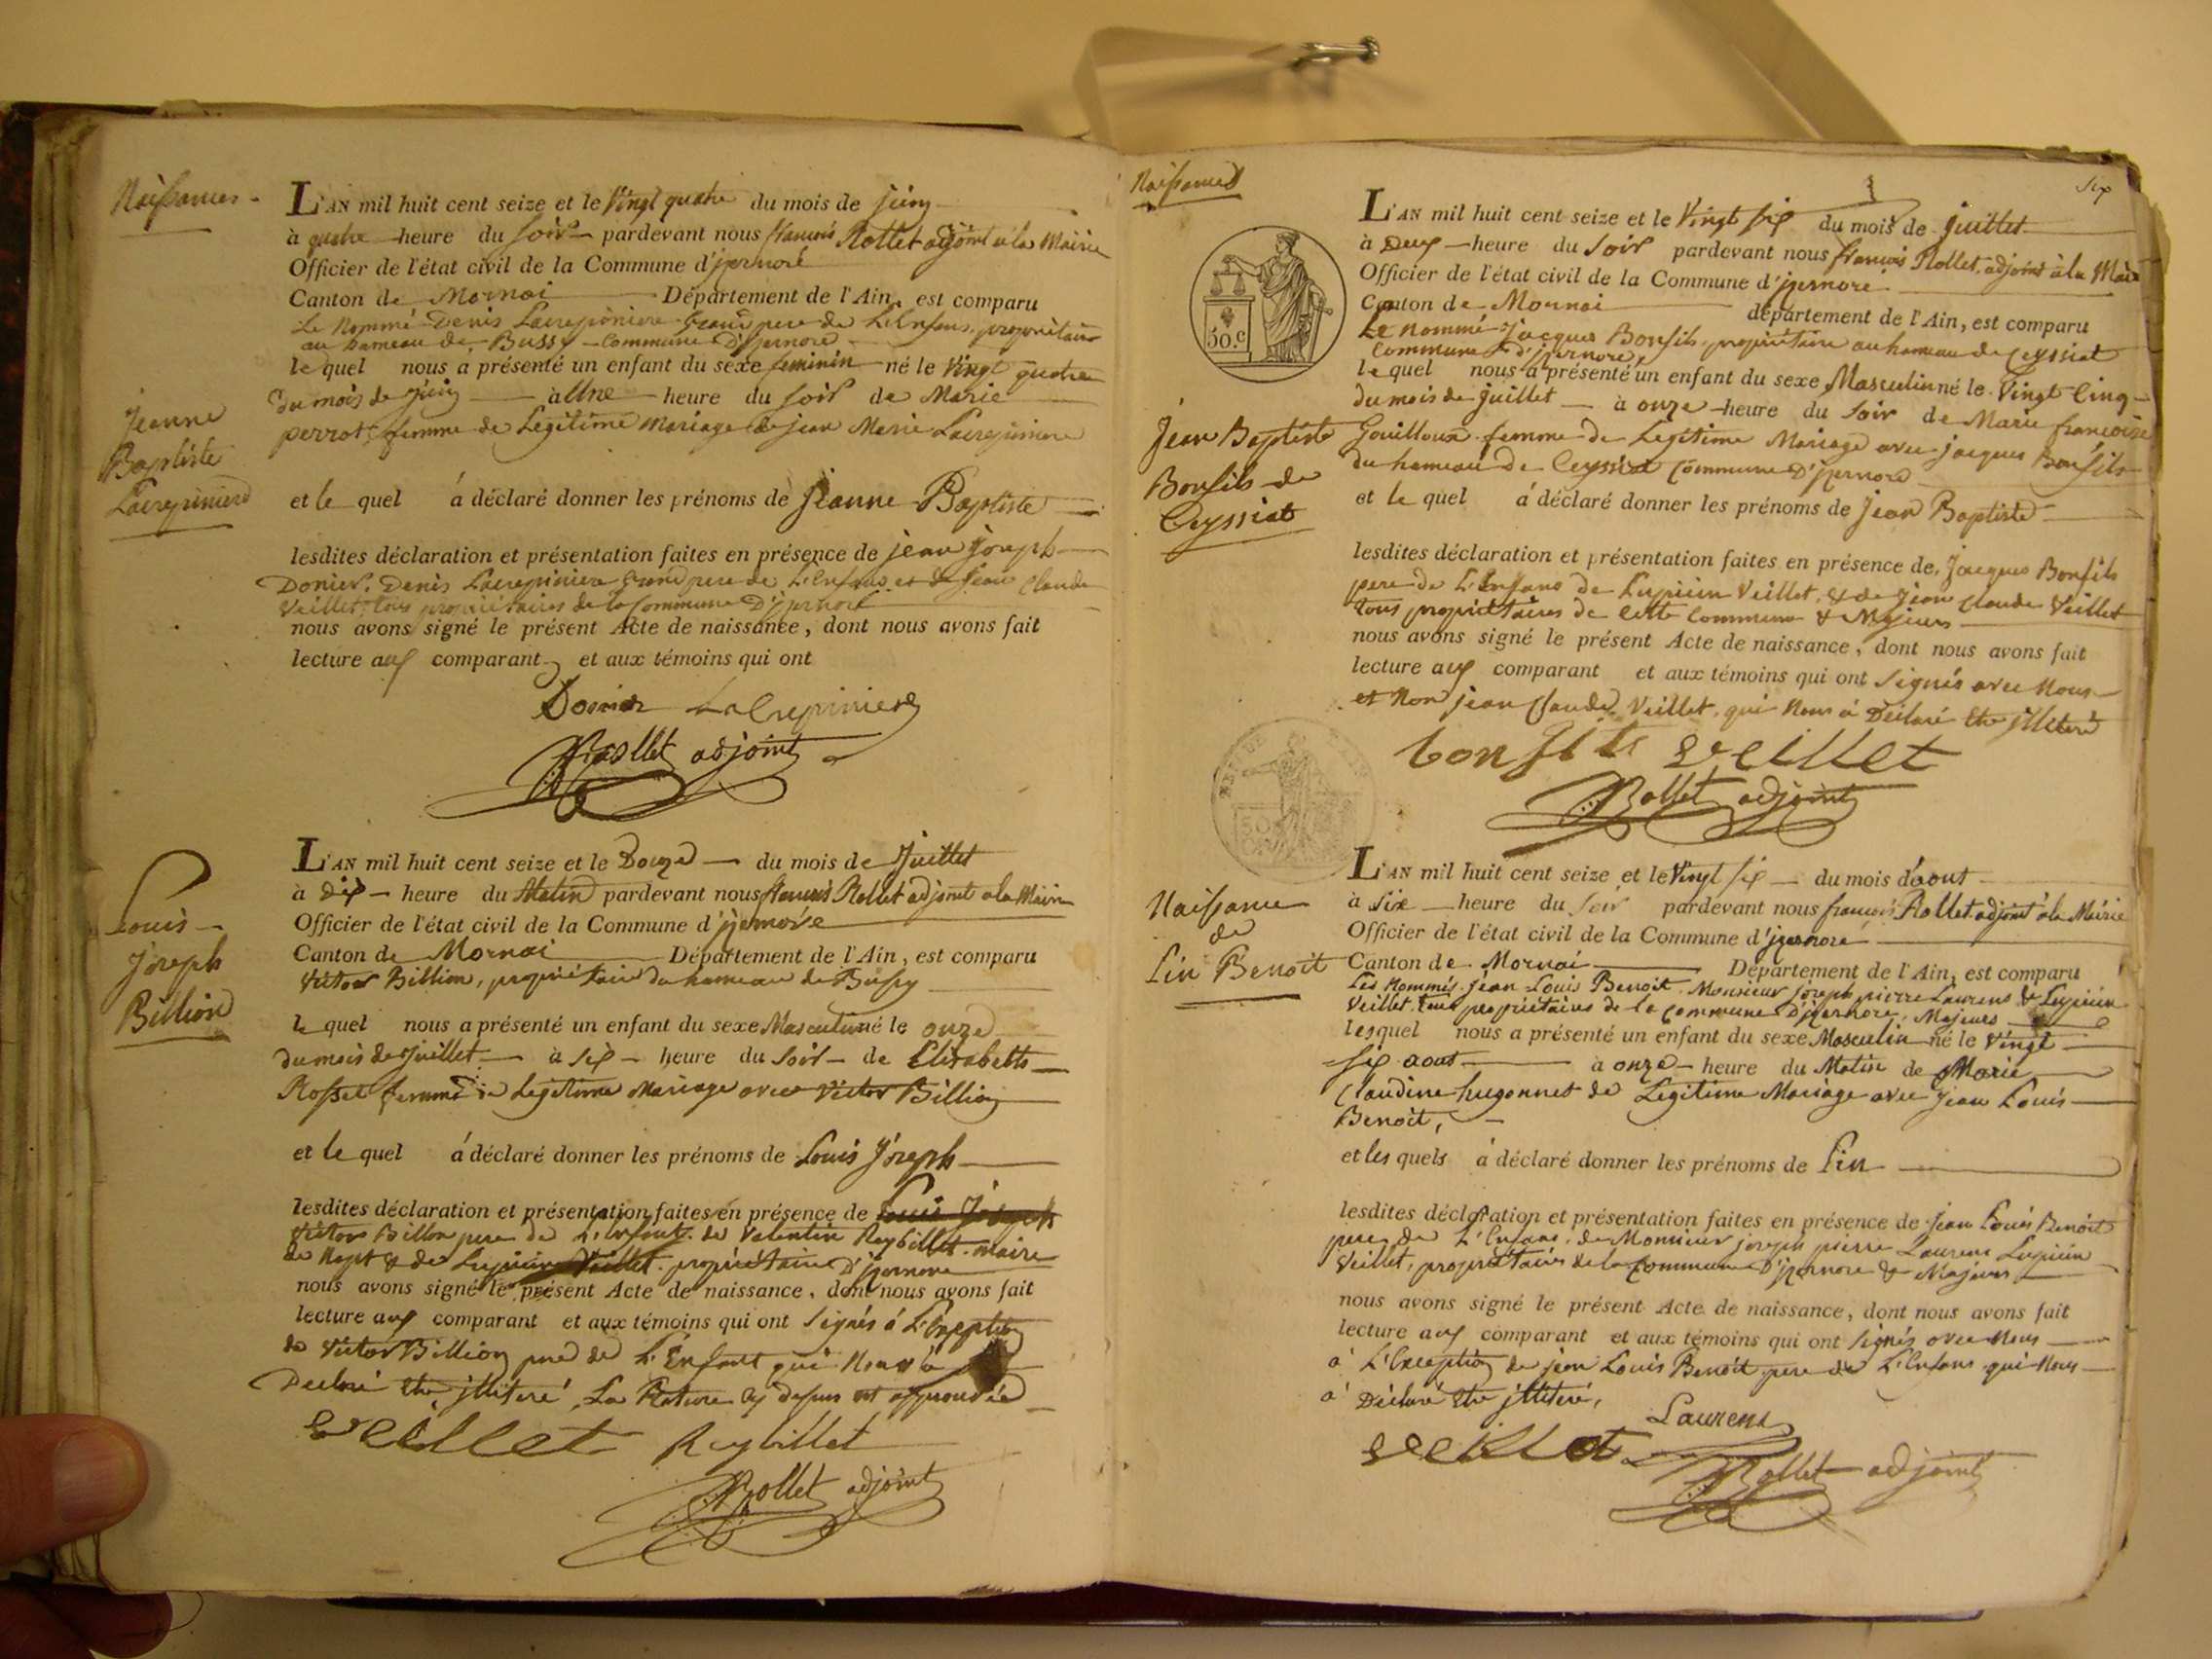 Naissances
L'AN mil huit cent seize et le Vingt quatre du mois de juin
à quatre heure du soir pardevant nous françois Rollet adjoint à la Mairie
Officier de l'état civil de la Commune d'izernore
Canton de Mornai Département de l'Ain, est comparu
Le Nommé Denis Lacrepiniere Grand pere de L'Enfans, propriétaire
au hameau de Bussy Commune D'izernore
le quel nous a présenté un enfant du sexe feminin né le Vingt quatre
du mois de juin à Une heure du soir de Marie
perrot, femme de Legitime Mariage de jean Marie Lacrepiniere
Jeanne
Baptiste
Lacrepiniere
et le quel á déclaré donner les prénoms de Jeanne Baptiste
lesdites déclaration et présentation faites en présence de jean joseph
Donier, Denis Lacrepiniere Grand pere de L'Enfans et de Jean Claude
Veillet, tous propriétaires de la Commune D'izernore
nous avons signé le présent Acte de naissance, dont nous avons fait
lecture aux comparant et aux témoins qui ont
Donier LaCrepiniere
Rollet adjoint
Louis
joseph
Billion
L'AN mil huit cent seize et le Douze du mois de Juillet
à dix heure du Matin pardevant nous françois Rollet adjoint a la Mairie
Officier de l'état civil de la Commune d'izernore
Canton de Mornai Département de l'Ain, est comparu
Victor Billion, propriétaire du hameau de Bussy
le quel nous a présenté un enfant du sexe Masculin né le onze
du mois de Juillet à six heure du Soir de Elisabeth
Rosset femme de Legitime Mariage avec Victor Billion
et le quel á déclaré donner les prénoms de Louis Joseph
lesdites déclaration et présentation faites en présence de Louis Joseph
Victor Billon pere de L'Enfant, de Valentin Reybillet maire
de Napt & de Lupicin Veillet propriétaire D'izernore
nous avons signé le présent Acte de naissance, dont nous avons fait
lecture aux comparant et aux témoins qui ont signés á L'Exception
de Victor Billion pere de L'Enfant qui Nous à
Declaré Etre illiteré, La Rature cy dessus est approuvée
veillet Reybillet
Rollet adjoint
Naissances
six
50.c
L'AN mil huit cent seize et le Vingt six du mois de Juillet
à Deux heure du Soir pardevant nous françois Rollet adjoint à la Mairie
Officier de l'état civil de la Commune d'izernore
Canton de Mornai département de l'Ain, est comparu
Le nommé Jacques Bonfils, propriétaire au hameau de Ceyssiat
Commune D'izernore,
le quel nous a présenté un enfant du sexe Masculin né le Vingt Cinq
du mois de Juillet à onze heure du Soir de Marie françoise
Gouilloux femme de Legitime Mariage avec jacques Bonfils
du hameau de Ceyssiat Commune D'izernore
Jean Baptiste
Bonfils de
Ceyssiat
et le quel á déclaré donner les prénoms de Jean Baptiste
lesdites déclaration et présentation faites en présence de, Jacques Bonfils
pere de L'Enfans de Lupicin Veillet, & de Jean Claude Veillet
tous propriétaires de Cette Commune & Majeurs
nous avons signé le présent Acte de naissance, dont nous avons fait
lecture aux comparant et aux témoins qui ont signés avec Nous
et Non jean Claude Veillet, qui Nous á Déclaré Etre illiteré
bonfils veillet
Rollet adjoint
Naissance
de
Lin Benoit
L'AN mil huit cent seize et le Vingt six du mois d'aout
à six heure du Soir pardevant nous françois Rollet adjoint à la Mairie
Officier de l'état civil de la Commune d'izernore
Canton de Mornai Département de l'Ain, est comparu
Les Nommés jean Louis Benoit Monsieur joseph pierre Laurens & Lupicin
Veillet tous propriétaires de la Commune D'izernore, Majeurs
lesquel nous a présenté un enfant du sexe Masculin né le Vingt
six aout à onze heure du Matin de Marie
Claudine hugonnet de Legitime Mariage avec Jean Louis
Benoit,
et les quels á déclaré donner les prénoms de Lin
lesdites déclaration et présentation faites en présence de jean Louis Benoit
pere de L'Enfans, de Monsieur joseph pierre Laurens Lupicin
Veillet, propriétaires de la Commune D'izernore & Majeurs
nous avons signé le présent Acte de naissance, dont nous avons fait
lecture aux comparant et aux témoins qui ont signés avec Nous
à L'Exception de jean Louis Benoit pere de L'Enfans qui Nous
à Déclaré Etre illiteré,
Laurens
veillet
Rollet adjoint